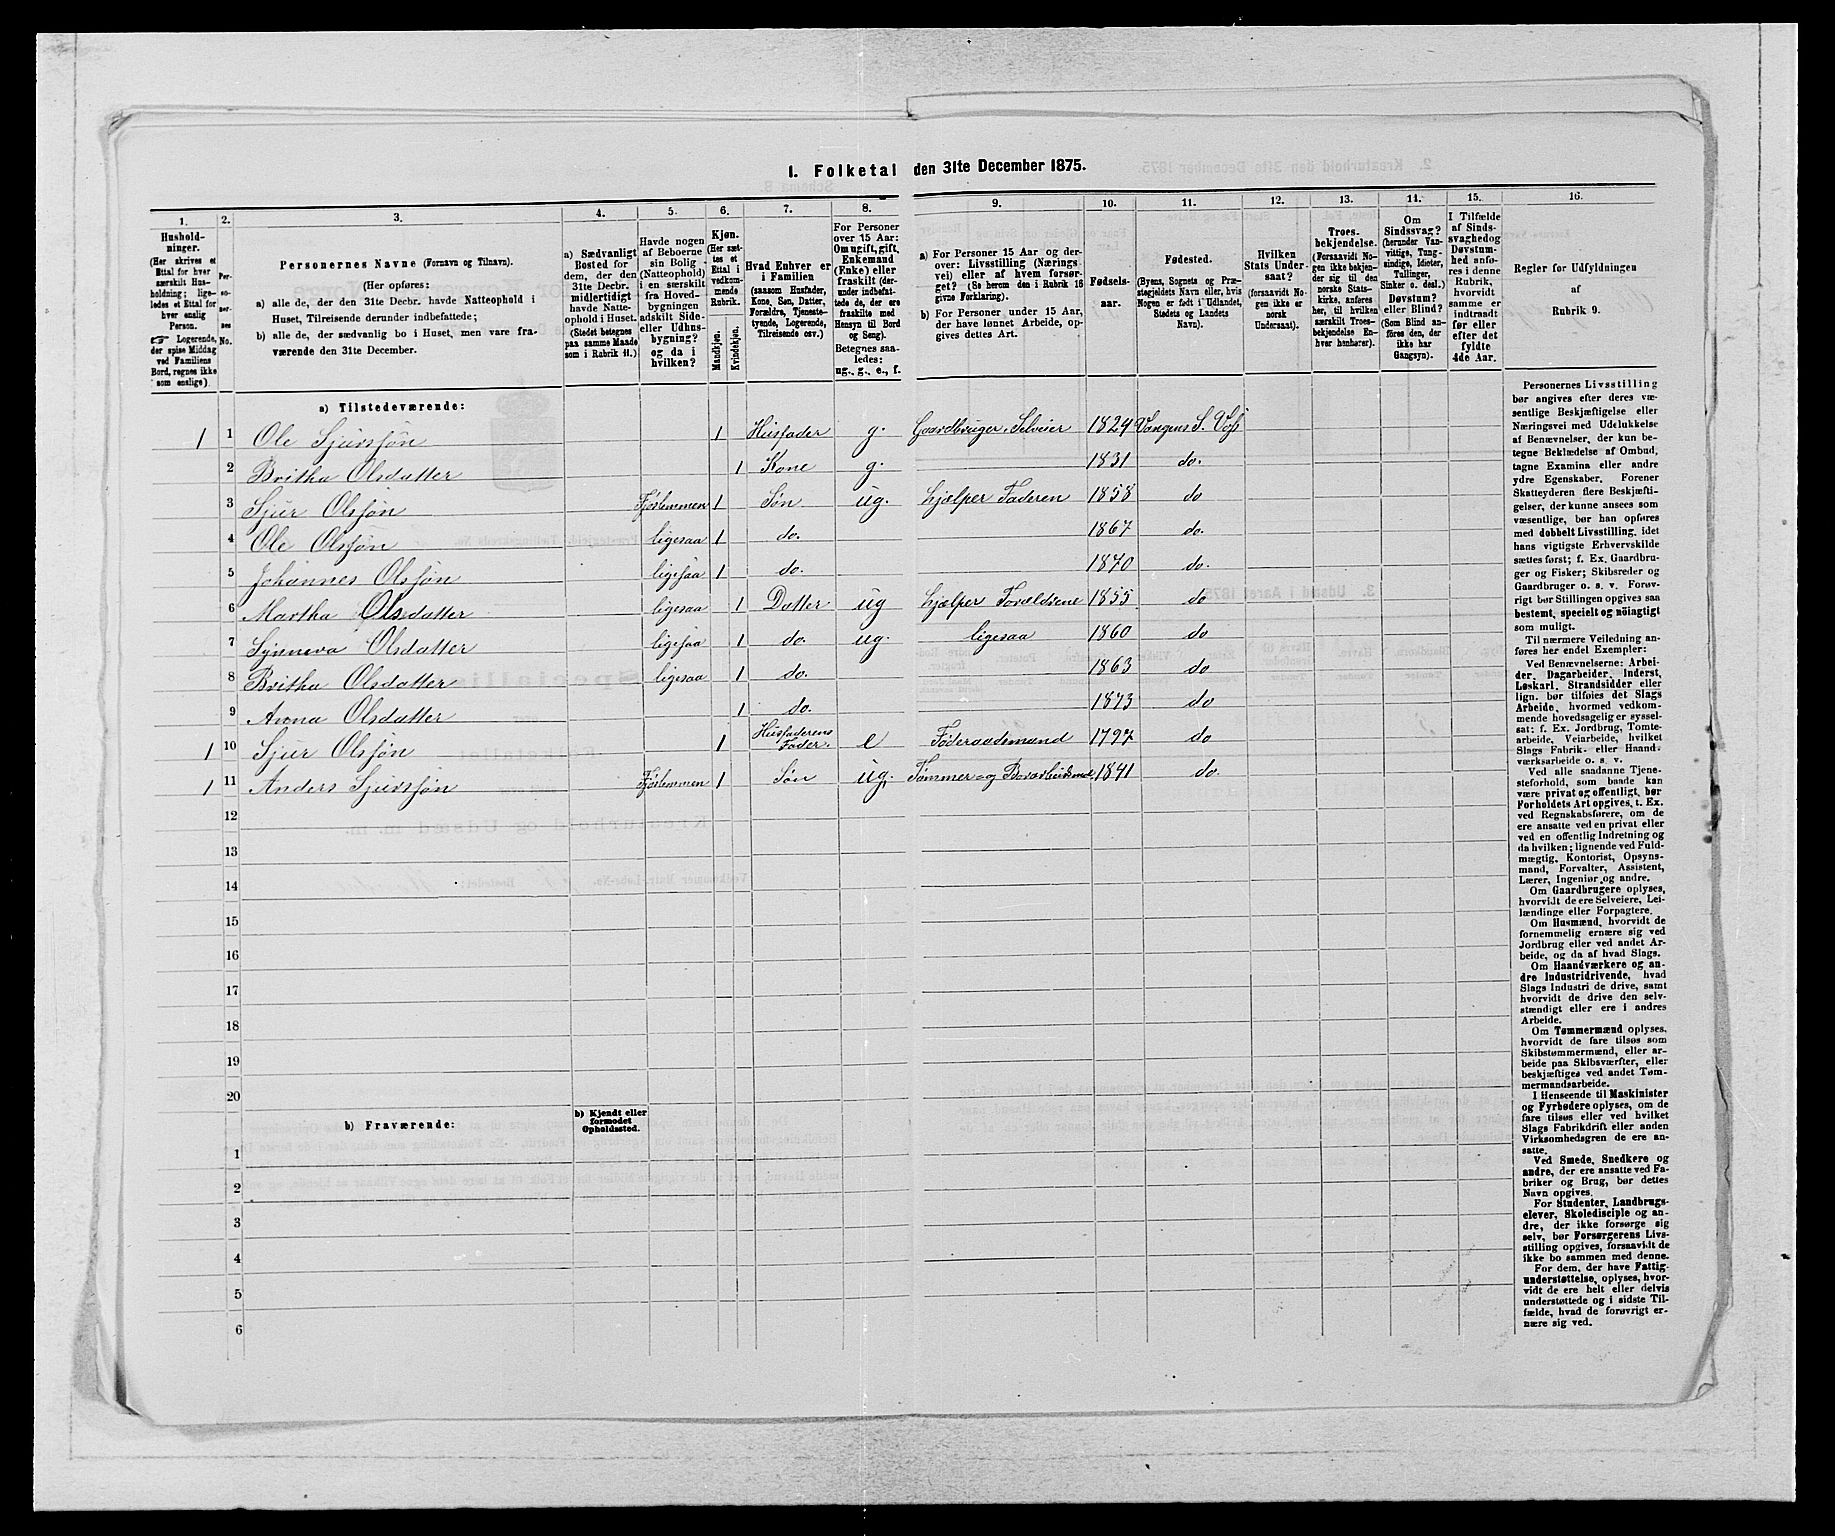 1. Folketal den 31te December 1875.
1. 2. 3. 4. 5. 6. 7. 8. 9. 10. 11. 12. 13. 14. 15. 16.
Hushold-
ninger.
(Her skrives et
Ettal for hver
særskilt Hus-
holdning; lige-
ledes et Ettal for
hver enslig
Person.
☞ Logerende,
der spise Middag
ved Familiens
Bord, regnes ikke
som enslige).
Per-
so-
ner-
nes
No.
Personernes Navne (Fornavn og Tilnavn).
(Her opføres:
a) alle de, der den 31te Decbr. havde Natteophold i
Huset, Tilreisende derunder indbefattede;
b) alle de, der sædvanlig bo i Huset, men vare fra-
værende den 31te December.
a) Sædvanligt
Bosted for
dem, der den
31te Decbr.
midlertidigt
havde Natte-
ophold i Huset.
(Stedet betegnes
paa samme Maade
som i Rubrik 11.)
Havde nogen
af Beboerne
sin Bolig
(Natteophold)
i en særskilt
fra Hoved-
bygningen
adskilt Side-
eller Udhus-
bygning?
og da i
hvilken?
Kjøn.
(Her sæt-
tes et
Ettal i
vedkom-
mende
Rubrik.
Mandkjøn.
Kvindekjøn.
Hvad Enhver er
i Familien
(saasom Husfader,
Kone, Søn, Datter,
Forældre, Tjeneste-
tyende, Logerende,
Tilreisende osv.)
For Personer
over 15 Aar:
Om ugift, gift,
Enkemand
(Enke) eller
fraskilt (der-
under indbefat-
tede de, der ere
fraskilte med
Hensyn til Bord
og Seng).
Betegnes saa-
ledes:
ug., g., e., f.
a) For Personer 15 Aar og der-
over: Livsstilling (Nærings-
vei) eller af hvem forsør-
get? (Se herom den i Rubrik 16
givne Forklaring).
b) For Personer under 15 Aar,
der have lønnet Arbeide, op-
gives dettes Art.
Fødsels-
aar.
Fødested.
(Byens, Sognets og Præ-
stegjeldets Navn eller, hvis
Nogen er født i Udlandet,
Stedets og Landets
Navn).
Hvilken
Stats Under-
saat?
(forsaavidt No-
gen ikke er
norsk
Undersaat).
Troes-
bekjendelse.
(Forsaavidt No-
gen ikke bekjen-
der sig til den
norske Stats-
kirke, anføres
her, til hvilken
særskilt Troes-
bekjendelse En-
hver henhører).
Om
Sindssvag?
(herunder Van-
vittige, Tung-
sindige, Idioter,
Tullinger,
Sinker o. desl.)
Døvstum?
eller Blind?
(Som Blind an-
føres den, der
ikke har
Gangsyn).
I Tilfælde
af Sinds-
svaghedog
Døvstum-
hed anfø-
res i denne
Rubrik,
hvorvidt
samme er
indtraadt
før eller
efter det
fyldte
4de Aar.
Regler for Udfyldningen
af
Rubrik 9.
a) Tilstedeværende:
1 1 Ole Sjursøn 1 Husfader g. Gaardbruger, Selveier 1824 Vangens S. Voss
2 Britha Olsdatter 1 Kone g. 1831 do.
3 Sjur Olssøn Fjøslemmen 1 Søn ug. hjælper Faderen 1858 do
4 Ole Olssøn ligesaa 1 do. 1867 do.
5 Johannes Olssøn ligesaa 1 do. 1870 do.
6 Martha Olsdatter ligesaa 1 Datter ug hjælper Forældrene 1855 do
7 Synneva Olsdatter ligesaa 1 do. ug. ligesaa 1860 do
8 Britha Olsdatter ligesaa 1 do. 1863 do
9 Anna Olsdatter 1 do. 1873 do
1 10 Sjur Olssøn 1 Husfaderens Fader. e Føderaadsmand 1797 do
1 11 Anders Sjurssøn Fjøslemmen 1 Søn ug. Tømmer-og 1841 do.
12
13
14
15
16
17
18
19
20
b) Fraværende:
b) Kjendt eller
formodet
Opholdssted.
1
2
3
4
5
6
Personernes Livsstilling
bør angives efter deres væ-
sentlige Beskjæftigelse eller
Næringsvei med Udelukkelse
af Benævnelser, der kun be-
tegne Beklædelse af Ombud,
tagne Examina eller andre
ydre Egenskaber. Forener
Skatteyderen flere Beskjæfti-
gelser, der kunne ansees som
væsentlige, bør han opføres
med dobbelt Livsstilling, idet
hans vigtigste Erhvervskilde
sættes først; f. Ex. Gaardbru-
ger og Fisker; Skibsreder og
Gaardbruger o. s. v. Forøv-
rigt bør Stillingen opgives saa
bestemt, specielt og nöiagtigt
som muligt.
Til nærmere Veiledning an-
føres her endel Exempler:
Ved Benævnelserne: Arbei-
der, Dagarbeider, Inderst,
Løskarl, Strandsidder eller
lign. bør tilføies det Slags
Arbeide, hvormed vedkom-
mende hovedsagelig er syssel-
sat: f. Ex. Jordbrug, Tomte-
arbeide, Veiarbeide, hvilket
Slags Fabrik- eller Haand-
værksarbeide o. s. v.
Ved alle saadanne Tjene-
steforhold, som baade kan
være privat og offentligt, bør
Forholdets Art opgives, t. Ex.
ved Regnskabsførere, om de
ere ansatte ved en privat eller
ved en offentlig Indretning og
da hvilken; lignende ved Fuld-
mægtig, Kontorist, Opsyns-
mand, Forvalter, Assistent,
Lærer, Ingeniør og andre.
Om Gaardbrugere oplyses,
hvorvidt de ere Selveiere, Lei-
lændinge eller Forpagtere.
Om Husmænd, hvorvidt de
fornemmelig ernære sig ved
Jordbrug eller ved andet Ar-
beide, og da af hvad Slags.
Om Haandværkere og an-
dre Industridrivende, hvad
Slags Industri de drive, samt
hvorvidt de drive den selv-
stændigt eller ere i andres
Arbeide.
Om Tømmermænd oplyses,
hvorvidt de fare tilsøs som
Skibstømmermænd, eller ar-
beide paa Skibsværfter, eller
beskjæftiges ved andet Tøm-
mermandsarbeide.
I Henseende til Maskinister
og Fyrbødere oplyses, om de
fare tilsøs eller ved hvilket
Slags Fabrikdrift eller anden
Virksomhedsgren de ere an-
satte.
Ved Smede, Snedkere og
andre, der ere ansatte ved Fa-
briker og Brug, bør dettes
Navn opgives.
For Studenter, Landbrugs-
elever, Skoledisciple og an-
dre, der ikke forsørge sig
selv, bør Forsørgerens Livs-
stilling opgives, forsaavidt de
ikke bo sammen med denne.
For dem, der have Fattig-
understøttelse, oplyses, hvor-
vidt de ere helt eller delvis
understøttede og i sidste Til-
fælde, hvad de forøvrigt er-
nære sig ved.